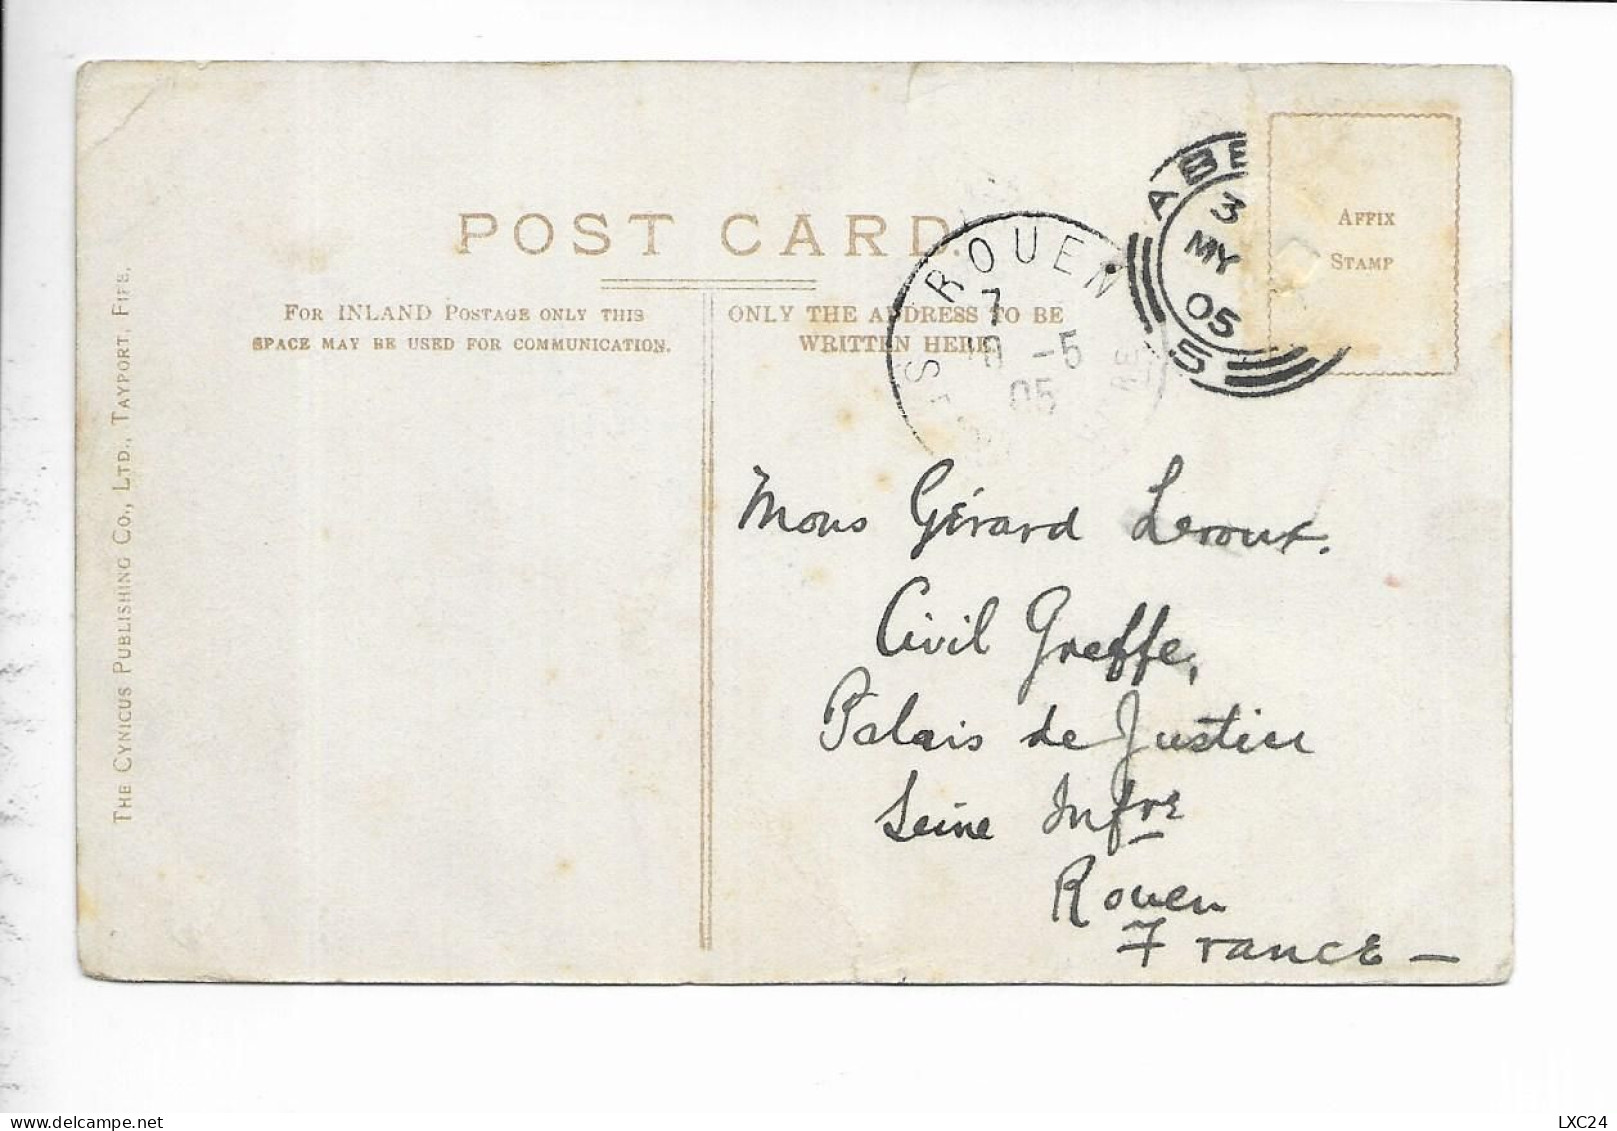 POST CARD.
AFFIX
STAMP
FOR INLAND POSTAGE ONLY THIS
SPACE MAY BE USED FOR COMMUNICATION.
ONLY THE ADDRESS TO BE
WRITTEN HERE.
THE CYNICUS PUBLISHING CO., LTD., TAYPORT, FIFE.
ROUEN
7
-5
05
ABE
3
MY
05
5
Mons Gérard Leroux.
Civil Greffe,
Palais de Justice
Seine Infre
Rouen
France —
LXC24